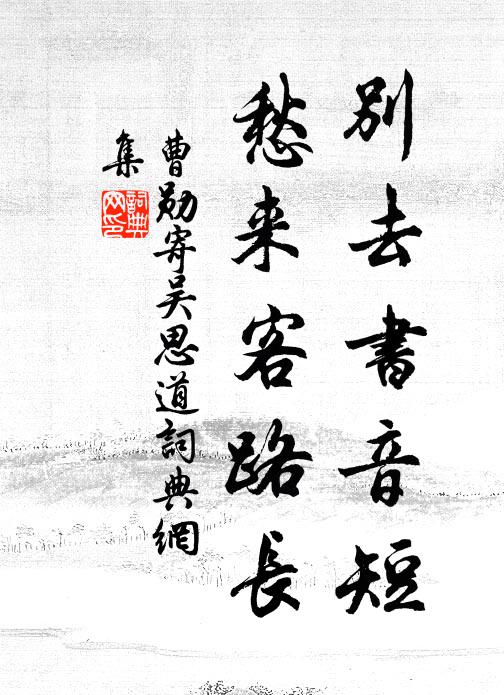 別去書音短
愁来客路長
曹勛寄吴思道詞典網
集
詞典
网印